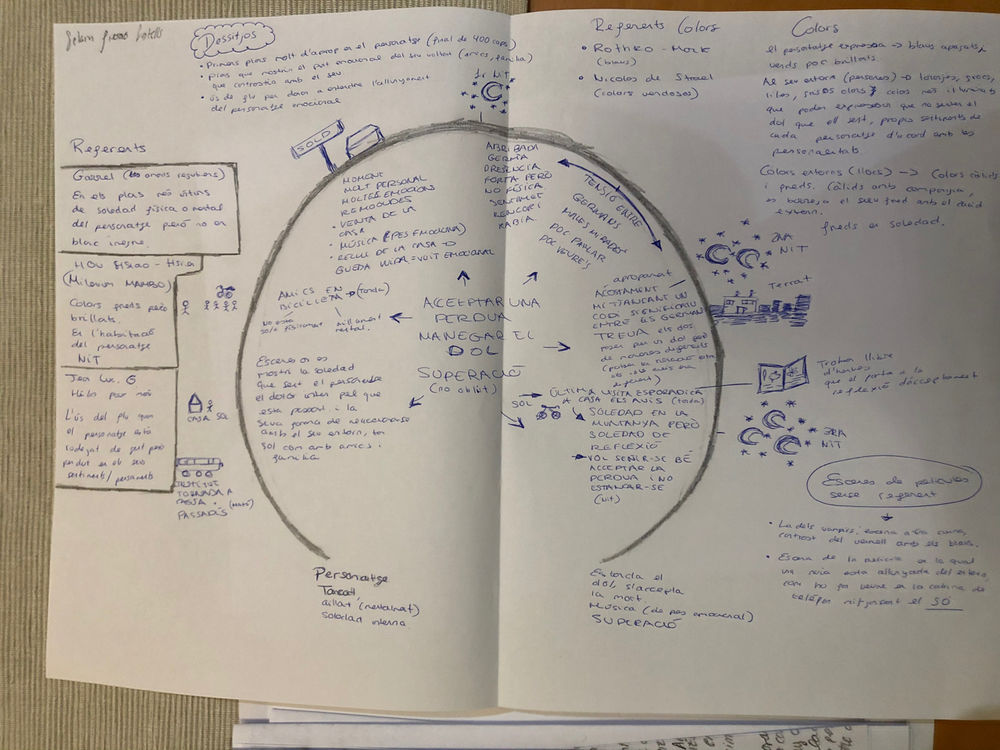 Dessitjos
• Primers plans molt d'aprop en el personatge (final de 400 cops)
• plans que mostrin el estat emocional del seu voltant (amics, família)
que contrastin amb el seu
• ús de per donar a entendre l'allunyament
del personatge emocional
Referents Colors
• Rothko - Mark
(blaus)
• Nicolas de Stael
(colors verdosos)
Colors
el personatge expressa → blaus apagats,
verds poc brillants.
Al seu entorn (persones) → taronjes, grocs,
liles, colors més il·luminats
que poden expressar que no senten el
dol que ell sent, propis sentiments de
cada personatge d'acord amb les
personalitats
Colors externs (llocs) → Colors càlids
i freds. Càlids amb companyia,
es barreja el seu fred amb el càlid
extern.
freds en soledat.
Referents
Garrel (Les amants reguliers)
En els plans més íntims
de soledat física o mental
del personatge però no en
blanc i negre.
HOU Hsiao-Hsien
(Milenium MAMBO)
Colors freds però
brillants.
En l'habitació
del personatge
NIT
Jean Luc. G
L'ús del que
el personatge està
rodejat de gent però
perdut en els seus
sentiments/pensaments
1r NIT
SOLD
MOMENT
MOLT PERSONAL
MOLTES EMOCIONS
REMOGUDES
• VENTA DE LA
CASA
• MÚSICA (PES EMOCIONAL)
• RECULL DE LA CASA →
QUEDA BUIDA = BUIT EMOCIONAL
ARRIBADA
GERMÀ
PRESÈNCIA
FORTA PERÒ
NO FÍSICA
SENTIMENT
RENCOR I
RÀBIA.
TENSIÓ ENTRE
GERMANS
MALES MIRADES
POC PARLAR
POC VEURE'S
2NA
NIT
Terrat
AMICS EN
BICICLETA → (Tarda)
No està
sol físicament
aïllament
mental.
ACCEPTAR UNA
PÈRDUA
MANEGAR EL
DOL
SUPERACIÓ
(no oblit)
apropament
ACOSTAMENT
MITJANÇANT UN
COSA SIGNIFICATIU
ENTRE ELS GERMANS
TREUA els dos
passen per un dol però
de maneres diferents
Escenes on es
mostri la soledat
que sent el personatge
el dolor intern pel que
està passant i la
seva forma de relacionar-se
amb el seu entorn, tan
sol com amb amics i
família
SOL
ÚLTIMA VISITA ESPORÀDICA
A CASA ELS AVIS (tarda)
SOLEDAT EN LA
MUNTANYA PERÒ
SOLEDAT DE
REFLEXIÓ
VOL SENTIR-SE BÉ
ACCEPTAR LA
PÈRDUA I NO
ESTANCAR-SE
(nit)
Troben llibre
que el porta a la
reflexió d'acceptament
3RA
NIT
CASA SOL
INSTITUT
TORNADA A
CASA
PASSADÍS
Escenes de pelicules
sense referent
• La dels vampirs,
contrast del vermell amb els blaus.
• Escena de la pel·lícula en la qual
una noia està allunyada del extern,
com ho fa veure en la cabina de
telèfon mitjançant el SÓ
Personatge
Tancat,
aïllat (mentalment)
soledat interna
Es tanca el
dol, s'accepta
la mort
Música (de pes emocional)
SUPERACIÓ